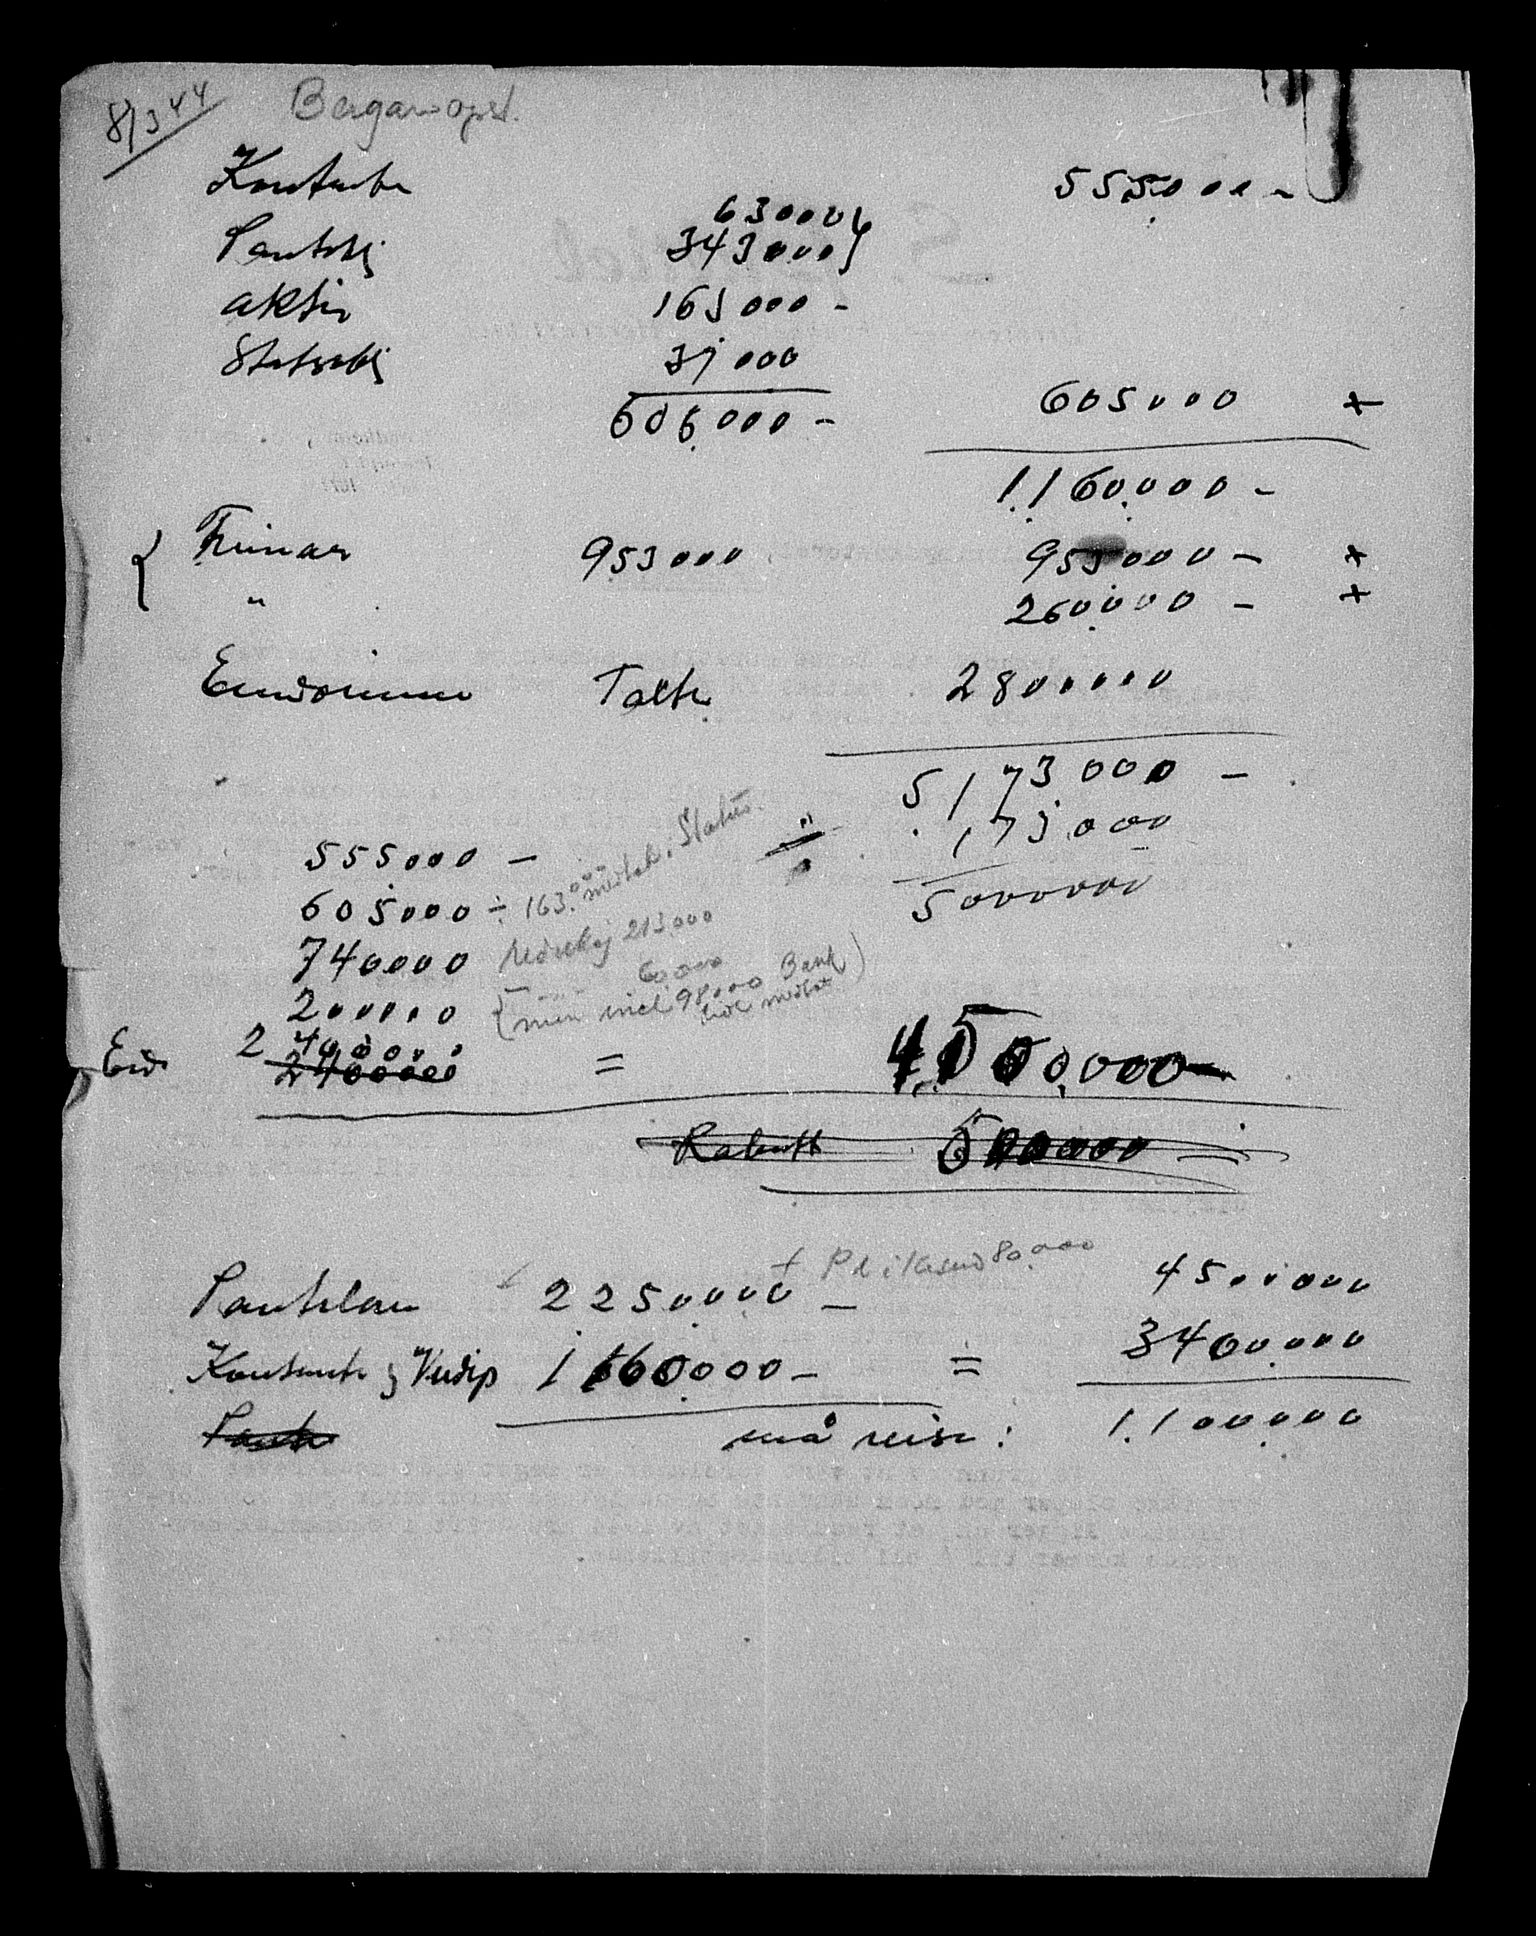 8/3 44 Bergansopst.
Kontanter 555000 -
63000
Pantobl 343000
Aktier 163000 -
Statsobl 37000
606000 - 605000 +
1.160.000 -
Firmaer 953000 953000 - +
" 260.000 - +
Eiendommene Takst 2800000
5173.000 -
÷ 173.000
5000000
555000 -
605000 ÷ 163.000 medtat i Status.
740000 213000
60.000
200000 (men incl 98.000 Bank)
ikke medtat
Eid 2 400000
2400000 = 4.500.000 -
Rabatt 500000 -
Pantelån 2250000 - + 80.000 4500000
Kontanter og Verdip 1160000 - = 3400.000
Pante må reise : 1.100.000